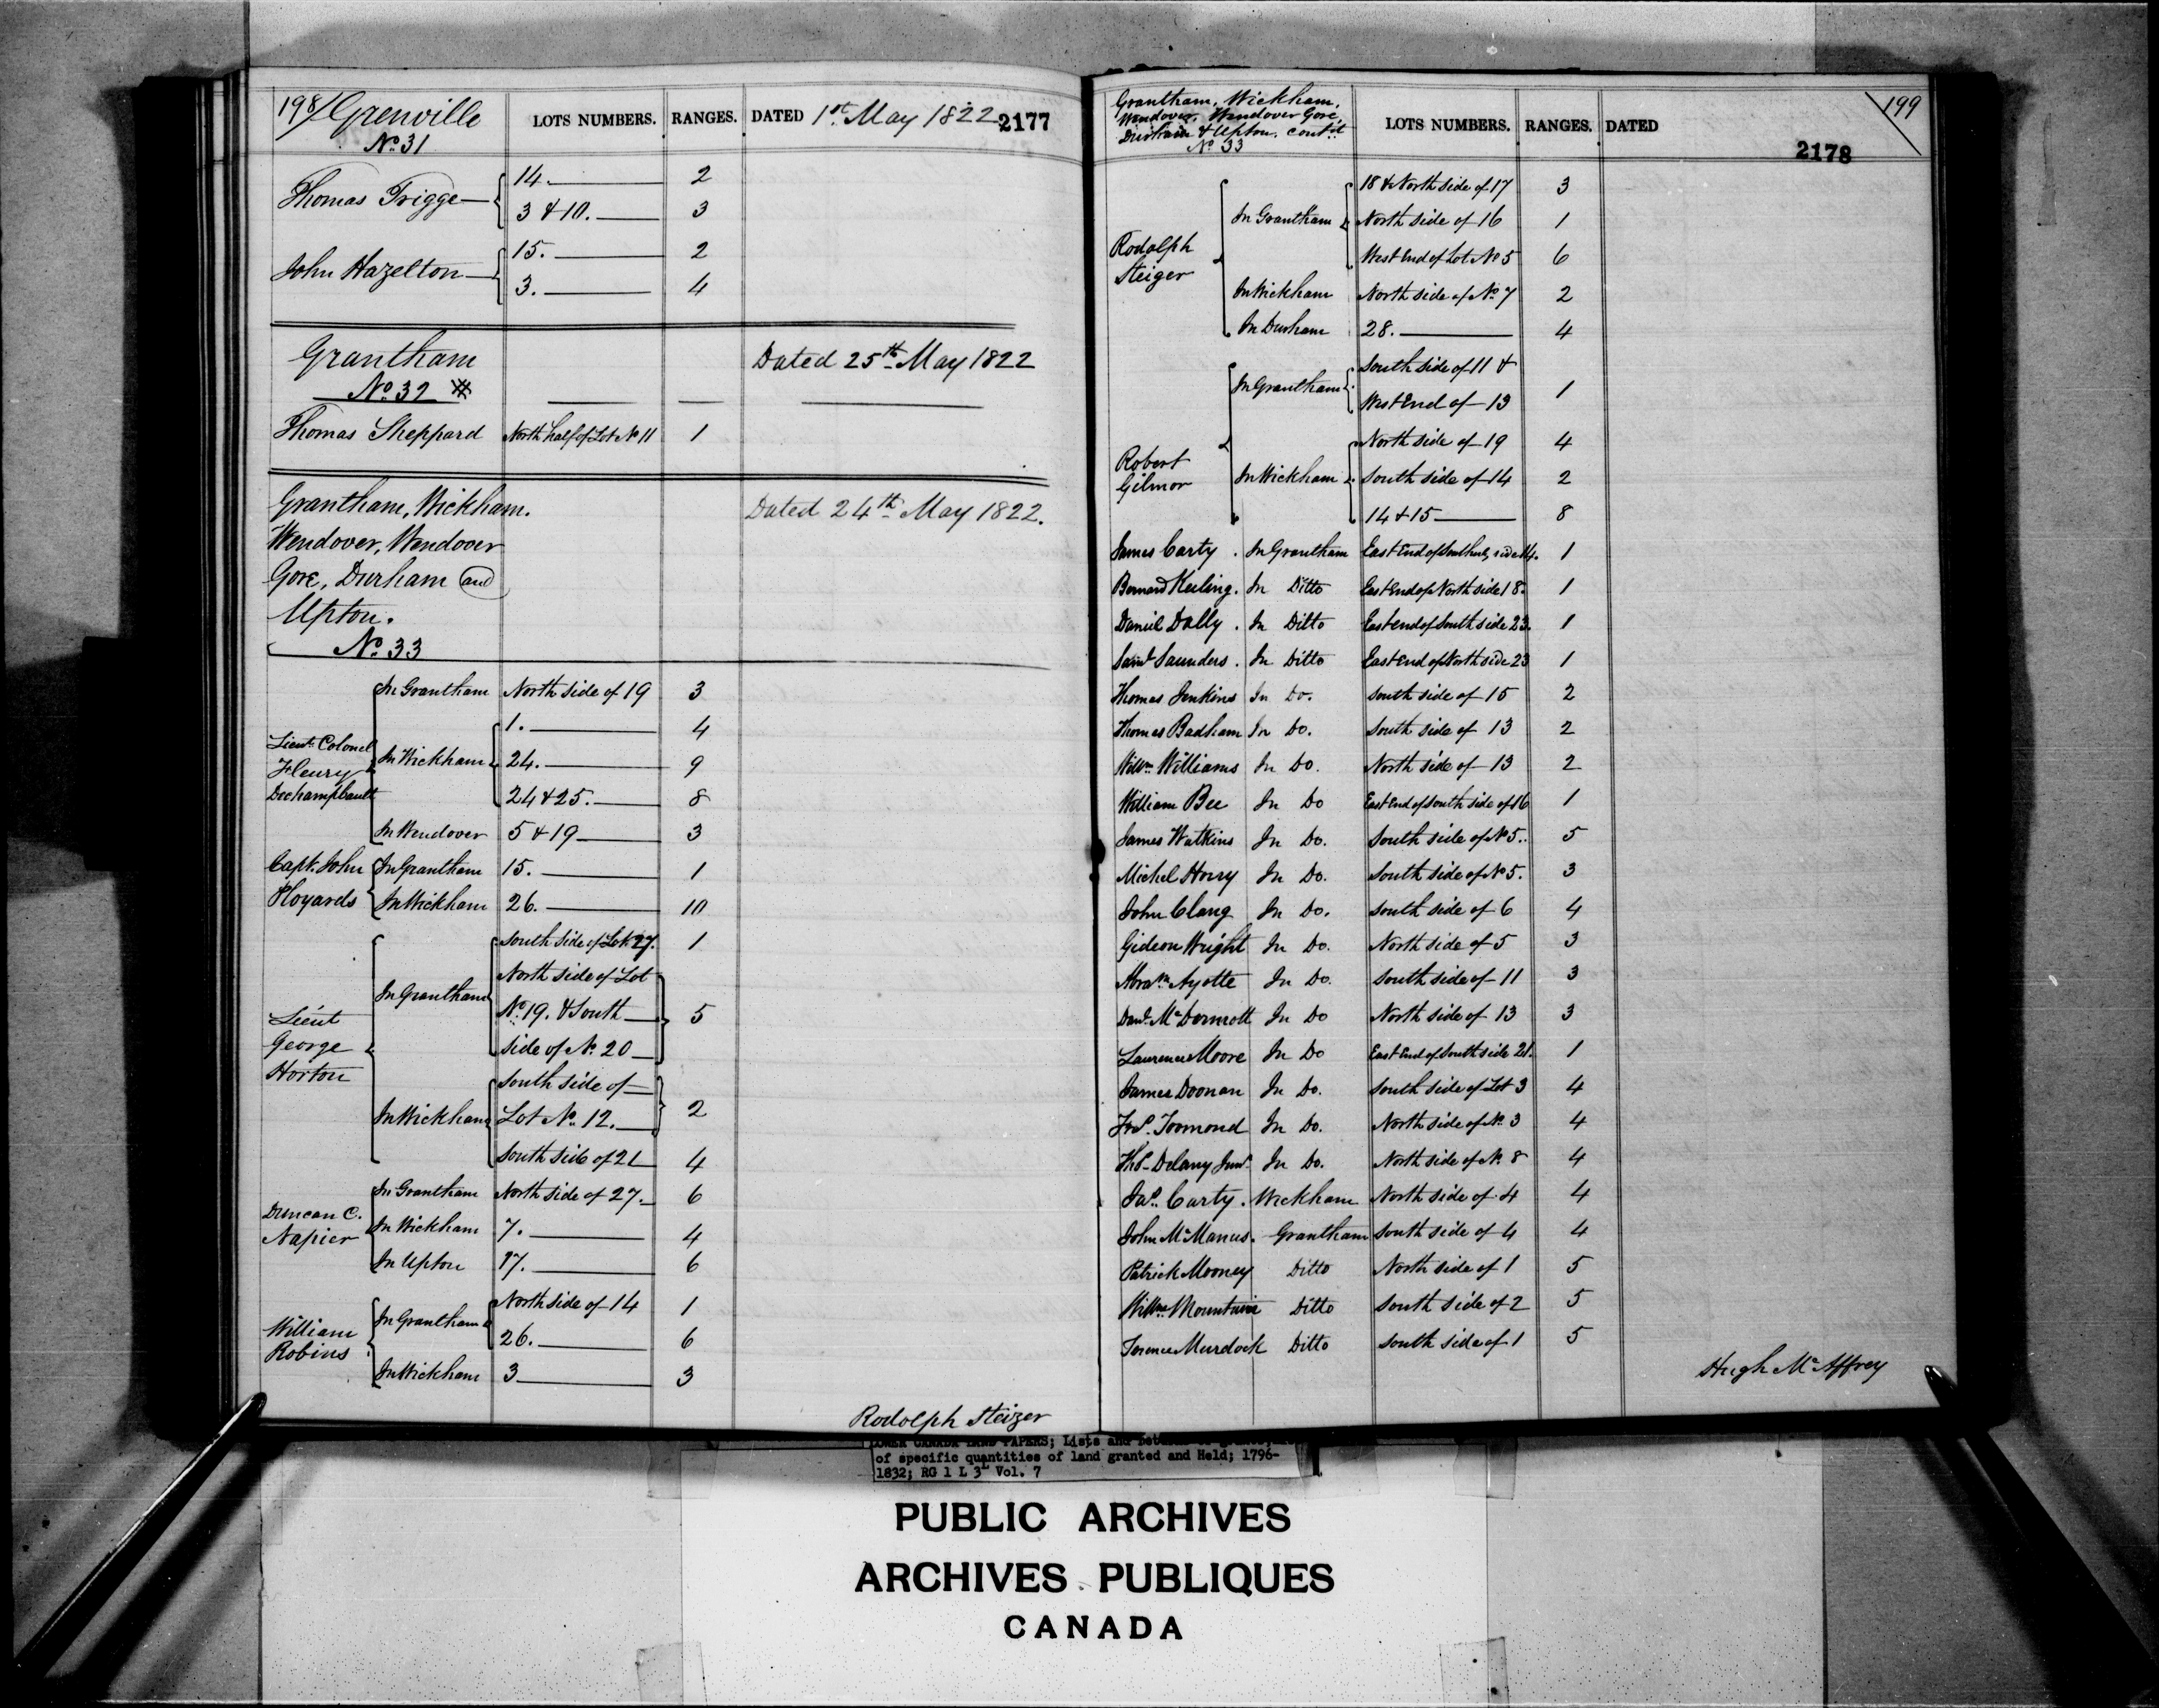 198/ Grenville LOTS NUMBERS. RANGES. DATED 1st May 1822 2177
No. 31
Thomas Trigge 14. 2
3 & 10. 3
John Hazelton 15. 2
3. 4
Grantham Dated 25th May 1822
No. 32
Thomas Sheppard North half of Lot No 11 1
Grantham, Wickham. Dated 24th May 1822.
Wendover, Wendover
Gore, Durham and
Upton.
No. 33
In Grantham North side of 19 3
1. 4
Lieut. Colonel
Fleury In Wickham 24. 9
Dechampbault 24 & 25. 8
In Wendover 5 & 19 3
Capt. John In Grantham 15. 1
Ployards In Wickham 26. 10
South side of Lot 27. 1
North side of Lot
In Grantham No. 19. & South 5
Lieut side of No. 20
George
Horton South side of
In Wickham Lot No. 12. 2
South side of 21 4
In Grantham North side of 27. 6
Duncan C.
Napier In Wickham 7. 4
In Upton 17. 6
North side of 14 1
William In Grantham 26. 6
Robins
In Wickham 3 3
Rodolph Steiger
Grantham, Wickham, LOTS NUMBERS. RANGES. DATED 199
Wendover, Wendover Gore,
Durham & Upton, cont'd
No. 33 2178
18 & North side of 17 3
In Grantham North side of 16 1
Rodolph West End of Lot No 5 6
Steiger
In Wickham North side of No. 7 2
In Durham 28. 4
South side of 11 &
In Grantham West End of 13 1
North side of 19 4
Robert
Gilmor In Wickham South side of 14 2
14 & 15 8
James Carty. In Grantham East End of South side 14. 1
Bernard Keiling. In Ditto East End of North side 18. 1
Daniel Dally. In Ditto East end of South side 23. 1
Saml Saunders. In Ditto East End of North side 23 1
Thomas Jenkins In Do. South side of 15 2
Thomas Badham In Do. South side of 13 2
Willm Williams In Do. North side of 13 2
William Bee In Do East End of South side of 16 1
James Watkins In Do. South side of No 5. 5
Michel Horry In Do. South side of No 5. 3
John Clang In Do. South side of 6 4
Gideon Wright In Do. North side of 5 3
Abram Ayotte In Do. South side of 11 3
Danl. McDermott In Do North side of 13 3
Laurence Moore In Do East End of South side 21. 1
James Doonan In Do. South side of Lot 3 4
Toomond In Do. North side of No. 3 4
Ths. Delany Junr. In Do. North side of No. 8 4
Jas. Carty. Wickham North side of 4 4
John McManus. Grantham South side of 4 4
Patrick Mooney Ditto North side of 1 5
Willm Mountain Ditto South side of 2 5
Terence Murdock Ditto South side of 1 5
Hugh McAffrey
LOWER CANADA LAND PAPERS; Lists and
of specific quantities of land granted and Held; 1796-
1832; RG 1 L 3L Vol. 7
PUBLIC ARCHIVES
ARCHIVES PUBLIQUES
CANADA